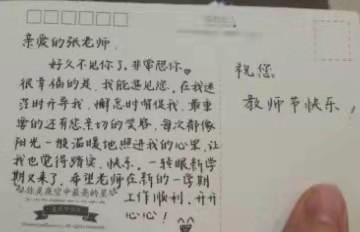 亲爱的张老师,
好久不见你了,非常想你。
很幸福的是,我能遇见您,在我迷
茫时开导我,懈怠时督促我,最重
要的还有您亲切的笑容,每次都像
阳光一般温暖地照进我的心里,让
我也觉得踏实、快乐。一转眼新学
期又来了,希望老师在新的一学期
工作顺利,开开
心心!
你是夜空中最亮的星
祝您
教师节快乐!